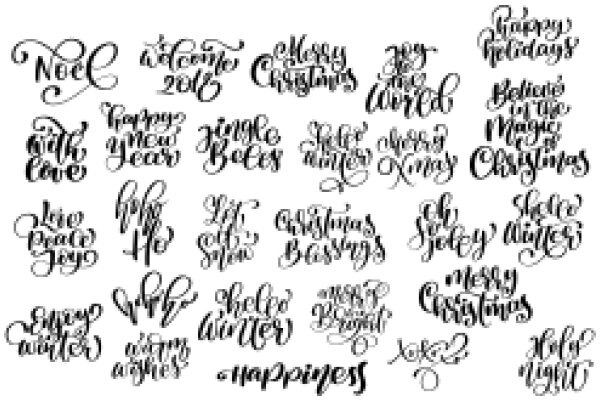 Noel
welcome
2018
Merry
Christmas
Joy
to
the
World
happy
holidays
with
love
happy
New
Year
Jingle
Bells
hello
winter
Merry
Xmas
Believe
in the
Magic
of
Christmas
Love
Peace
Joy
ho ho
Ho
Let
it
Snow
Christmas
Blessings
oh
so
jolly
hello
Winter
Enjoy
winter
hohoho
warm
wishes
hello
Winter
Merry
&
Bright
Merry
Christmas
Happiness
xoxo
Holy
night